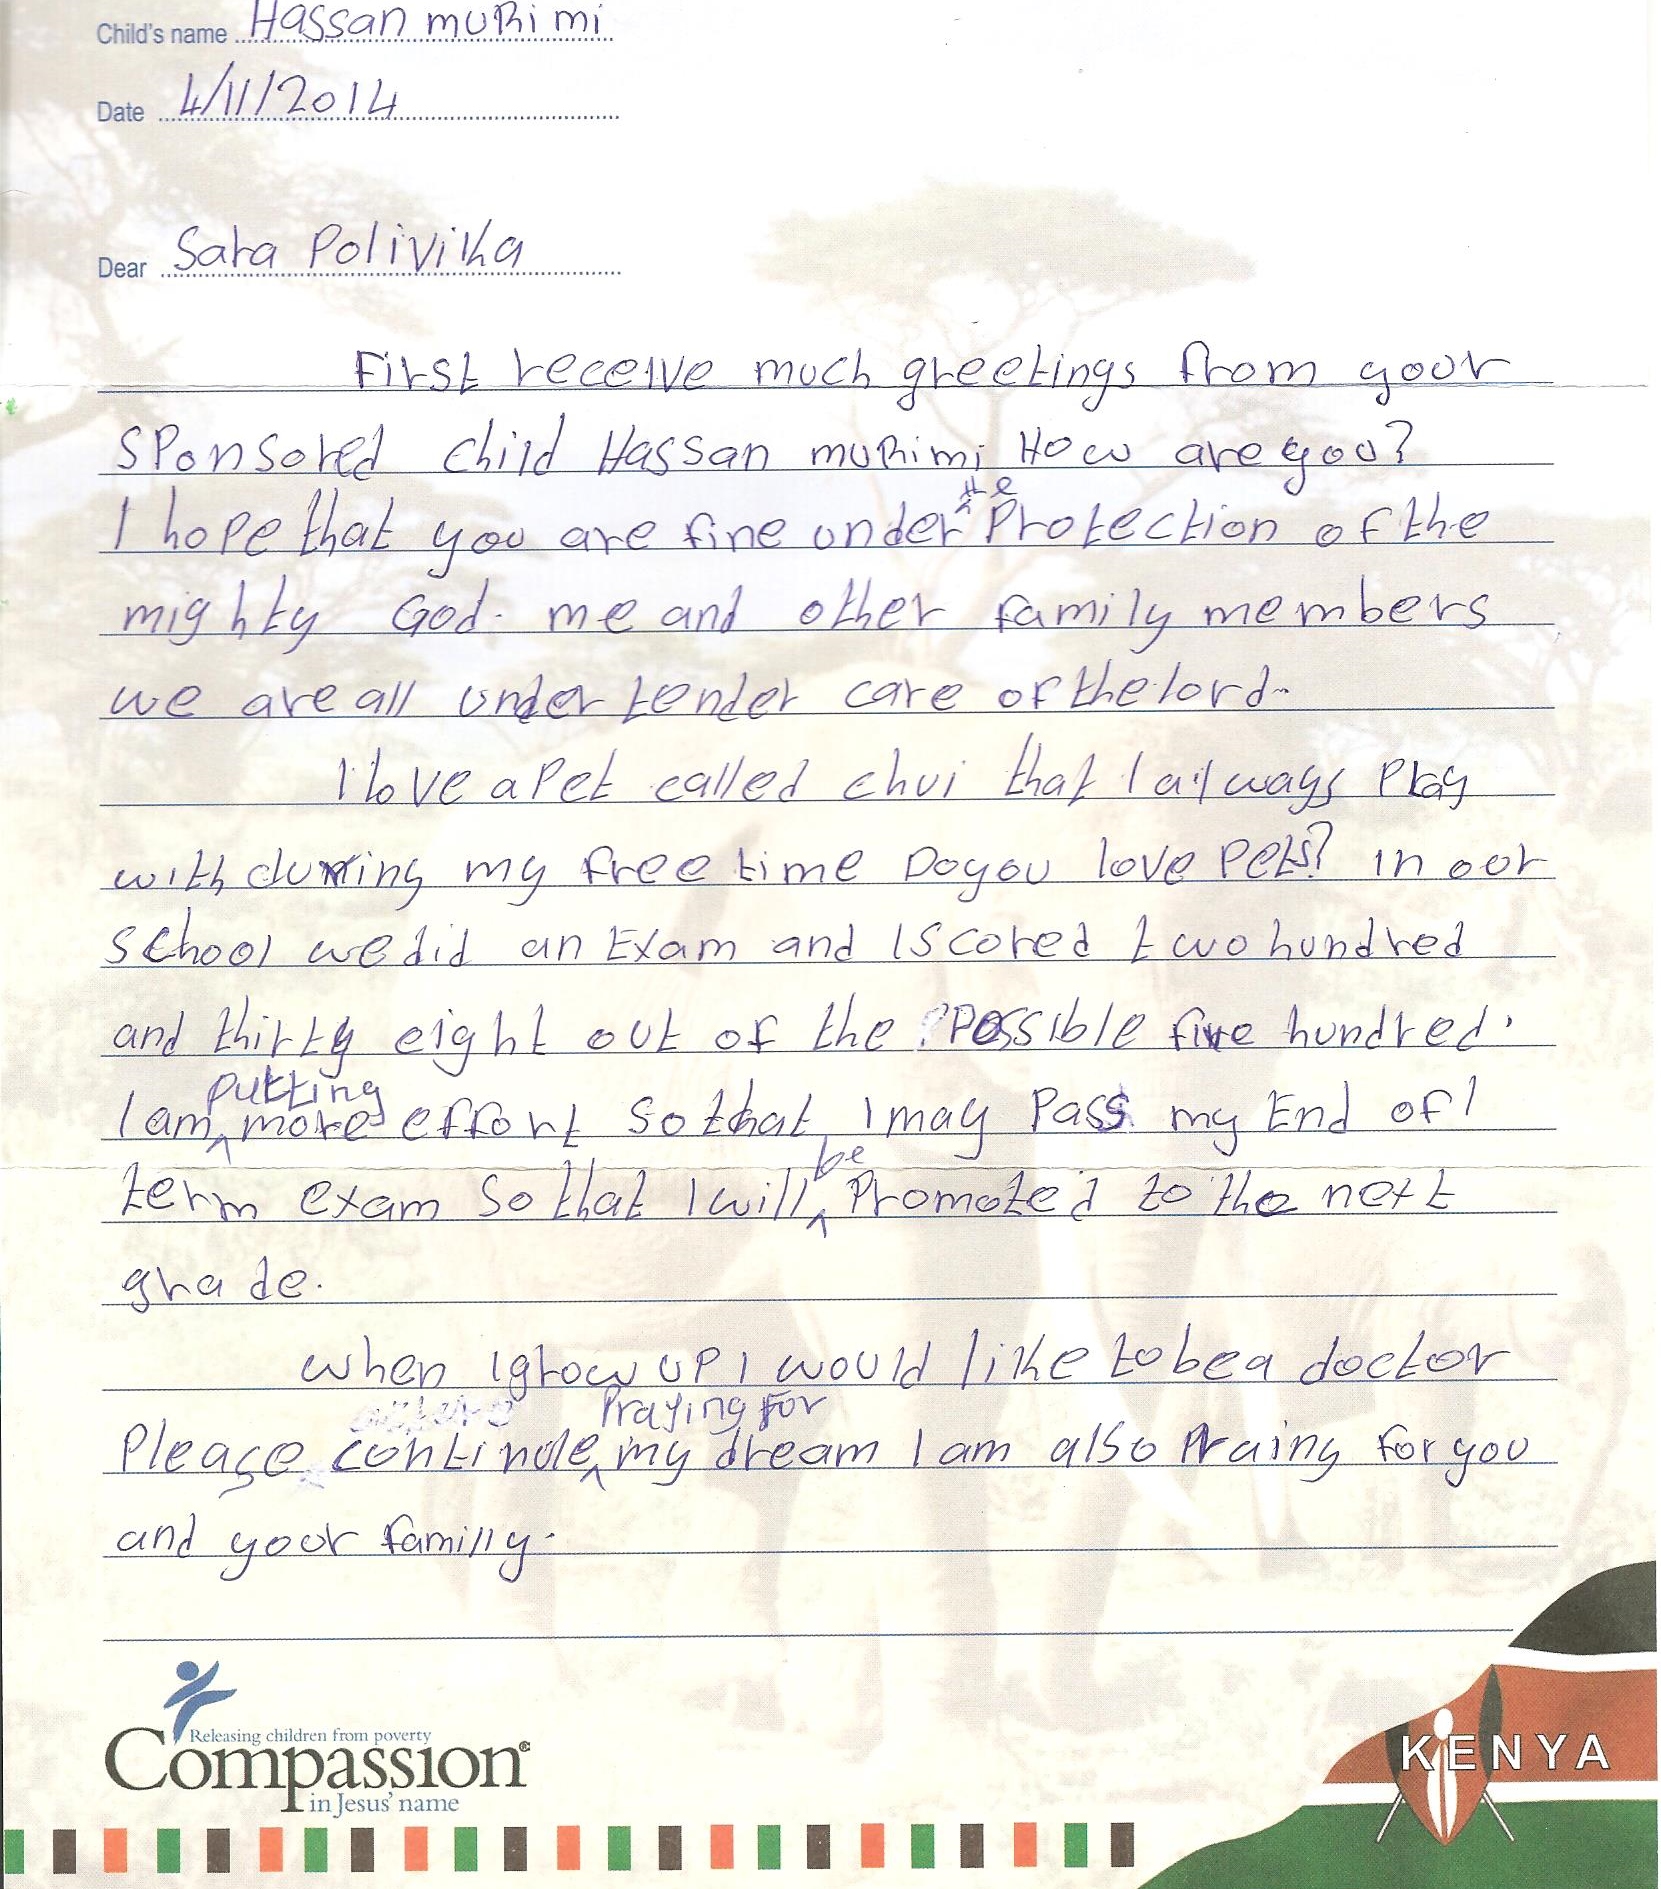 Child's name Hassan muRimi
Date 4/11/2014
Dear Sara Polivika
First receive much greetings from your
sponsored child Hassan muRimi How are you?
I hope that you are fine under the Protection of the
mighty God. me and other family members
we are all under tender care of the lord.
I love a Pet called chui that I always Play
with during my free time Do you love Pets? in our
school we did an Exam and I scored two hundred
and thirty eight out of the Possible five hundred.
I am putting more effort so that I may Pass my End of
term exam so that I will be Promoted to the next
grade.
when I grow uP I would like to be a doctor
Please continue Praying For my dream I am also Praing for you
and your familly.
Releasing children from poverty
Compassion®
in Jesus' name
KENYA